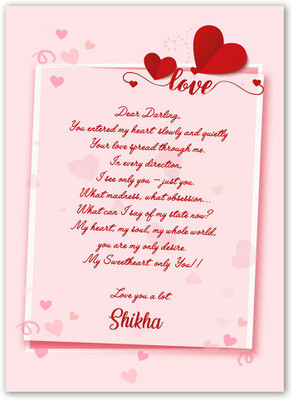 love
Dear Darling,
You entered my heart slowly and quietly
Your love spread through me.
In every direction,
I see only you – just you.
What madness, what obsession...
What can I say of my state now?
My heart, my soul, my whole world,
you are my only desire.
My Sweetheart only You!!
Love you a lot.
Shikha